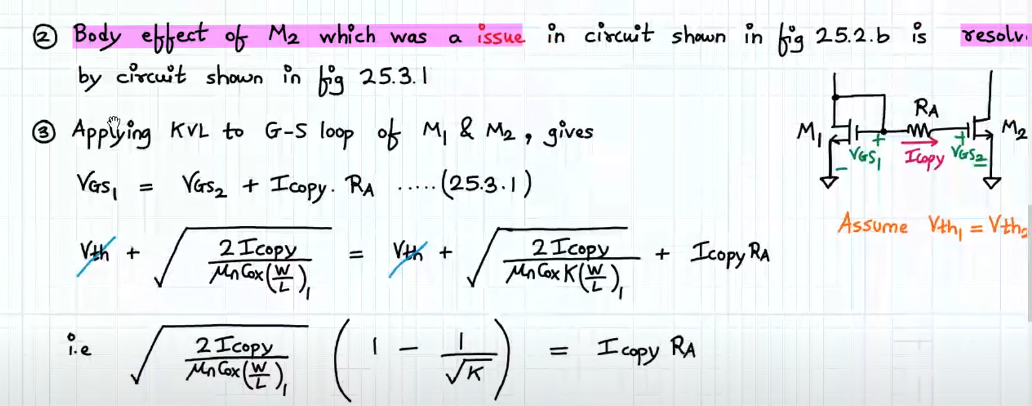 ② Body effect of M2 which was a issue in circuit shown in fig 25.2.b is resolv.
by circuit shown in fig 25.3.1
③ Applying KVL to G-S loop of M1 & M2, gives
VGS1 = VGS2 + Icopy. RA .....(25.3.1)
Vth + √(2Icopy / μnCox(W/L)1) = Vth + √(2Icopy / μnCox K(W/L)1) + Icopy RA
i.e √(2Icopy / μnCox(W/L)1) (1 - 1/√K) = Icopy RA
RA
M1 + VGS1 - Icopy + VGS2 - M2
Assume Vth1 = Vth2